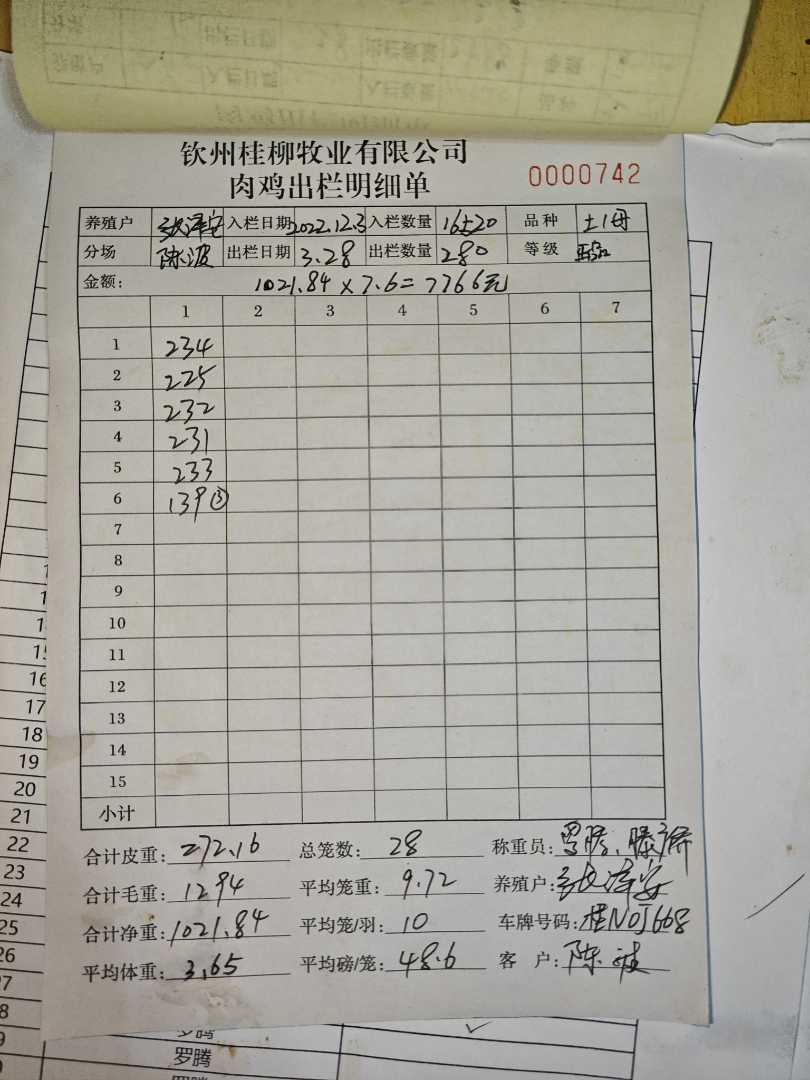 钦州桂柳牧业有限公司
肉鸡出栏明细单
0000742
养殖户 入栏日期 2022.12.3 入栏数量 16520 品种 土1母
分场 陈波 出栏日期 3.28 出栏数量 280 等级
金额: 1021.84 × 7.6 = 7766元
1 2 3 4 5 6 7
1 234
2 225
3 232
4 231
5 233
6 139 ③
7
8
9
10
11
12
13
14
15
小计
合计皮重: 272.16 总笼数: 28 称重员: 罗腾、
合计毛重: 1294 平均笼重: 9.72 养殖户:
合计净重: 1021.84 平均笼/羽: 10 车牌号码: 桂N0J668
平均体重: 3.65 平均磅/笼: 48.6 客户: 陈波
16
17
18
19
20
21
22
23
24
25
26
罗腾